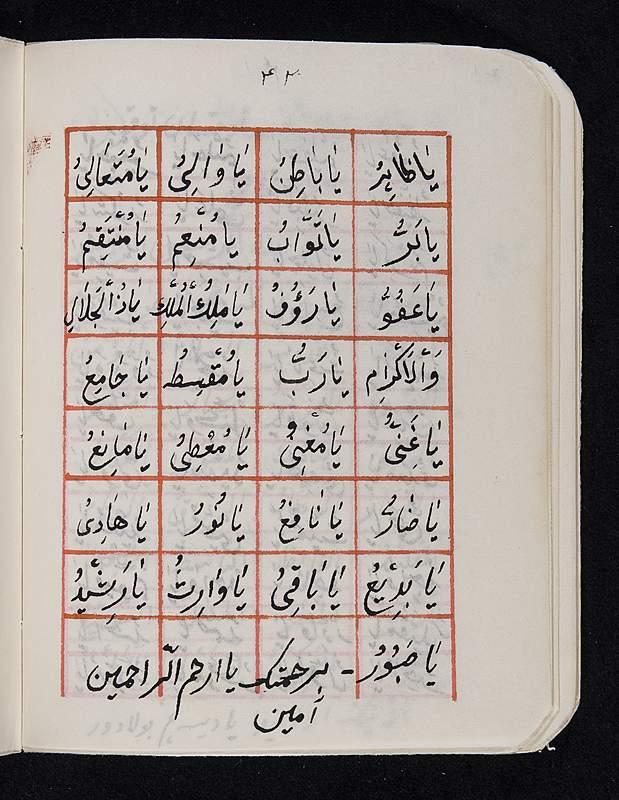 يَا ظَاهِرُ يَا بَاطِنُ يَا وَالِىُ يَا مُتَعَالِىُ
يَا بَرُّ يَا تَوَّابُ يَا مُنْعِمُ يَا مُنْتَقِمُ
يَا عَفُوُّ يَا رَؤُفُ يَا مَلِكَ الْمُلْكِ يَا ذُا الْجَلَالِ
وَالْاِكْرَامِ يَا رَبُّ يَا مُقْسِطُ يَا جَامِعُ
يَا غَنِىُّ يَا مُغْنِىُ يَا مُعْطِىُ يَا مَانِعُ
يَا ضَارُّ يَا نَافِعُ يَا نُورُ يَا هَادِىُ
يَا بَدِيْعُ يَا بَاقِىُ يَا وَارِثُ يَا رَشِيْدُ
يَا صَبُوْرُ - برحمتك يا ارحم الرّاحمين
آمين